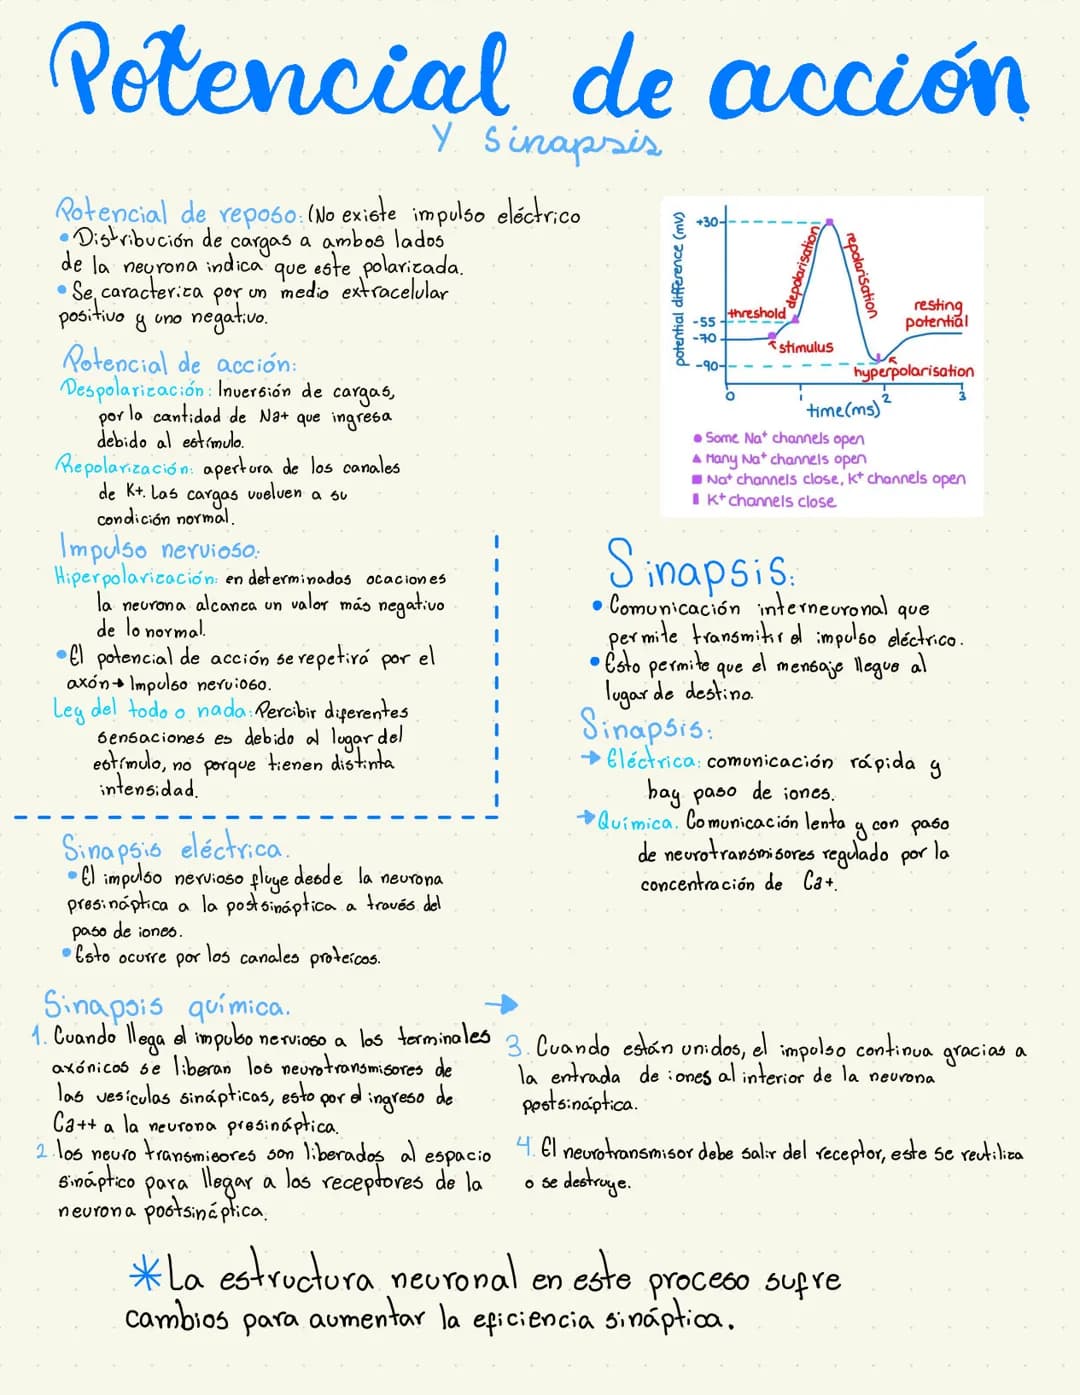 Potencial de acción
Y Sinapsis
Potencial de reposo: (No existe impulso eléctrico
• Distribución de cargas a ambos lados
de la neurona indica que este polarizada.
• Se caracteriza por un medio extracelular
positivo y uno negativo.
Potencial de acción:
Despolarización: Inversión de cargas,
por la cantidad de Na+ que ingresa
debido al estímulo.
Repolarización: apertura de los canales
de K+. Las cargas vuelven a su
condición normal.
potential difference (mV)
+30
-55
-70
-90
threshold
depolarisation
repolarisation
resting
potential
stimulus
hyperpolarisation
0
1
2
3
time(ms)
● Some Na⁺ channels open
▲ Many Na⁺ channels open
■ Na⁺ channels close, K⁺ channels open
▮ K⁺ channels close
Impulso nervioso:
Hiperpolarización: en determinadas ocaciones
la neurona alcanza un valor más negativo
de lo normal.
• El potencial de acción se repetirá por el
axón → Impulso nervioso.
Ley del todo o nada: Percibir diferentes
sensaciones es debido al lugar del
estímulo, no porque tienen distinta
intensidad.
Sinapsis:
• Comunicación interneuronal que
permite transmitir el impulso eléctrico.
• Esto permite que el mensaje llegue al
lugar de destino.
Sinapsis:
→ Eléctrica: comunicación rápida y
hay paso de iones.
→ Química. Comunicación lenta y con paso
de neurotransmisores regulado por la
concentración de Ca+.
Sinapsis eléctrica.
• El impulso nervioso fluye desde la neurona
presináptica a la postsináptica a través del
paso de iones.
• Esto ocurre por los canales proteicos.
Sinapsis química. →
1. Cuando llega el impulso nervioso a los terminales
axónicos se liberan los neurotransmisores de
las vesículas sinápticas, esto por el ingreso de
Ca++ a la neurona presináptica.
2. los neuro transmisores son liberados al espacio
sináptico para llegar a los receptores de la
neurona postsináptica.
3. Cuando están unidos, el impulso continua gracias a
la entrada de iones al interior de la neurona
postsináptica.
4. El neurotransmisor debe salir del receptor, este se reutiliza
o se destruye.
* La estructura neuronal en este proceso sufre
cambios para aumentar la eficiencia sináptica.